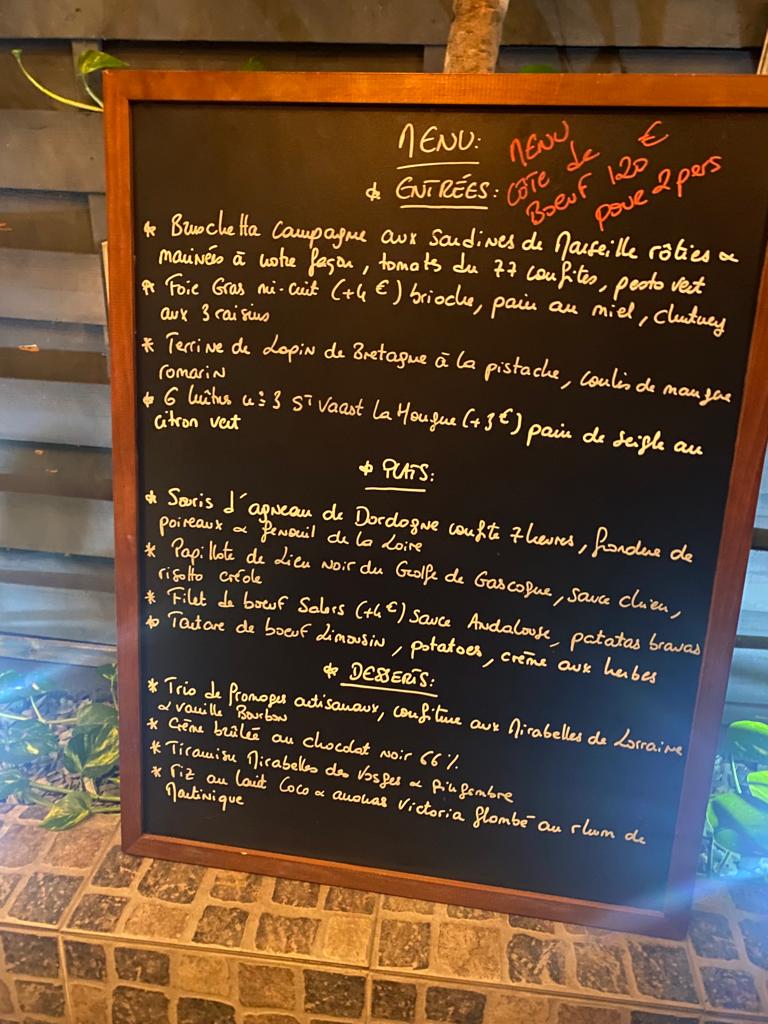 MENU:
MENU
CÔTE de
Boeuf 120 €
pour 2 pers
* ENTRÉES:
* Bruschetta Campagne aux Sardines de Marseille rôties &
marinés à notre façon, tomats du 77 confites, pesto vert
* Foie Gras mi-cuit (+4 €) brioche, pain au miel, chutney
aux 3 raisins
* Terrine de Lapin de Bretagne à la pistache, coulis de mangue
romarin
* 6 huîtres n=3 St Vaast La Hougue (+3€) pain de seigle au
citron vert
* PLATS:
* Souris d'agneau de Dordogne confite 7 heures, fondue de
poireaux & fenouil de la Loire
* Papillote de Lieu Noir du Golfe de Gascogne, sauce chien,
risotto créole
* Filet de boeuf Salers (+4€) Sauce Andalouse, patatas bravas
* Tartare de boeuf Limousin, potatoes, crème aux herbes
* DESSERTS:
* Trio de fromages artisanaux, confiture aux Mirabelles de Lorraine
& vanille Bourbon
* Crème brûlée au chocolat noir 66%
* Tiramisu Mirabelles des Vosges & gingembre
* Riz au lait Coco & ananas Victoria flambé au rhum de
Martinique